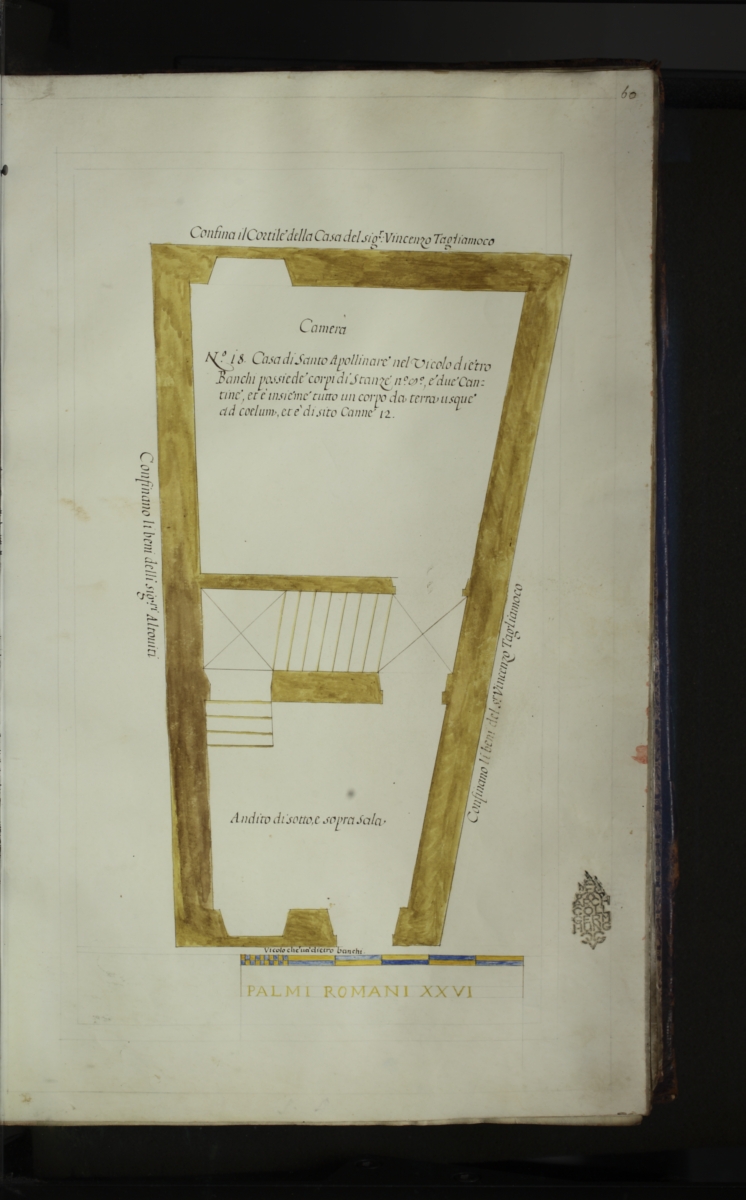 60
Confina il Cortile della Casa del sig.r Vincenzo Tagliamoco
Camera
N.o 18. Casa di Santo Apollinare nel Vicolo dietro
Banchi possiede corpi di Stanze n.o, e due Can=
tine, et è insieme tutto un corpo da terra usque
ad coelum, et è di sito Canne 12.
Confinano li beni delli sig.ri Altoviti
Confinano li beni del s.r Vincenzo Tagliamoco
Andito di sotto, e sopra Scala
Vicolo che va dietro banchi.
PALMI ROMANI XXVI